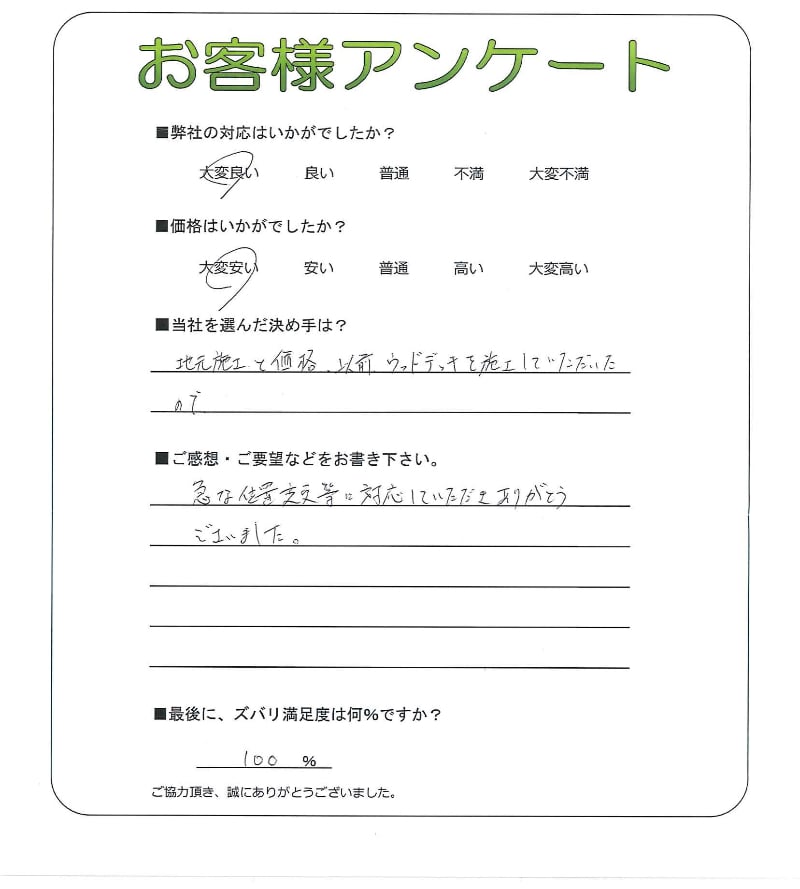 お客様アンケート
■弊社の対応はいかがでしたか？
大変良い 良い 普通 不満 大変不満
■価格はいかがでしたか？
大変安い 安い 普通 高い 大変高い
■当社を選んだ決め手は？
地元施工と価格、以前ウッドデッキを施工していただいた
ので
■ご感想・ご要望などをお書き下さい。
急な位置変更等に対応していただきありがとう
ございました。
■最後に、ズバリ満足度は何%ですか？
100 %
ご協力頂き、誠にありがとうございました。